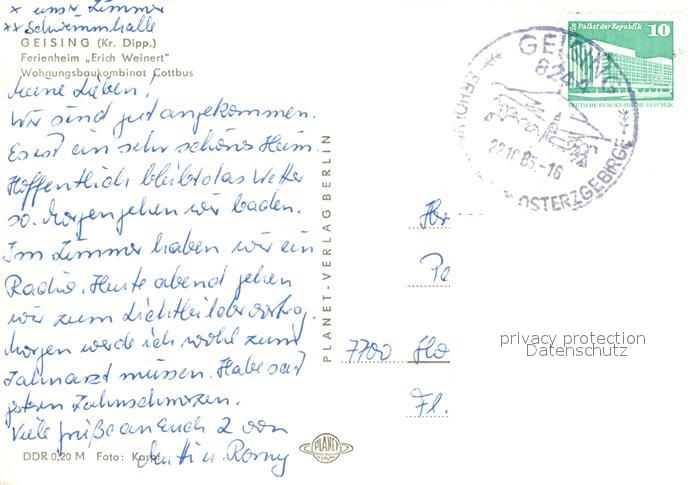 x unser Zimmer
xx Schwimmhalle
GEISING (Kr. Dipp.)
Ferienheim „Erich Weinert"
Wohnungsbaukombinat Cottbus
Meine Lieben!
Wir sind gut angekommen.
Es ist ein sehr schönes Heim.
Hoffentlich bleibt das Wetter
so. Morgen gehen wir baden.
Im Zimmer haben wir ein
Radio. Heute abend gehen
wir zum Lichtbildervortrag.
Morgen werde ich wohl zum
Zahnarzt müssen. Habe seit
gestern Zahnschmerzen.
Viele Grüße an Euch 2 von
Romy
DDR 0,20 M Foto: Kampf
PLANET-VERLAG BERLIN
PLANET
Palast der Republik 10
DEUTSCHE DEMOKRATISCHE REPUBLIK
GEISING
22.10.85.-16
OSTERZGEBIRGE
7700
Fl.
privacy protection
Datenschutz